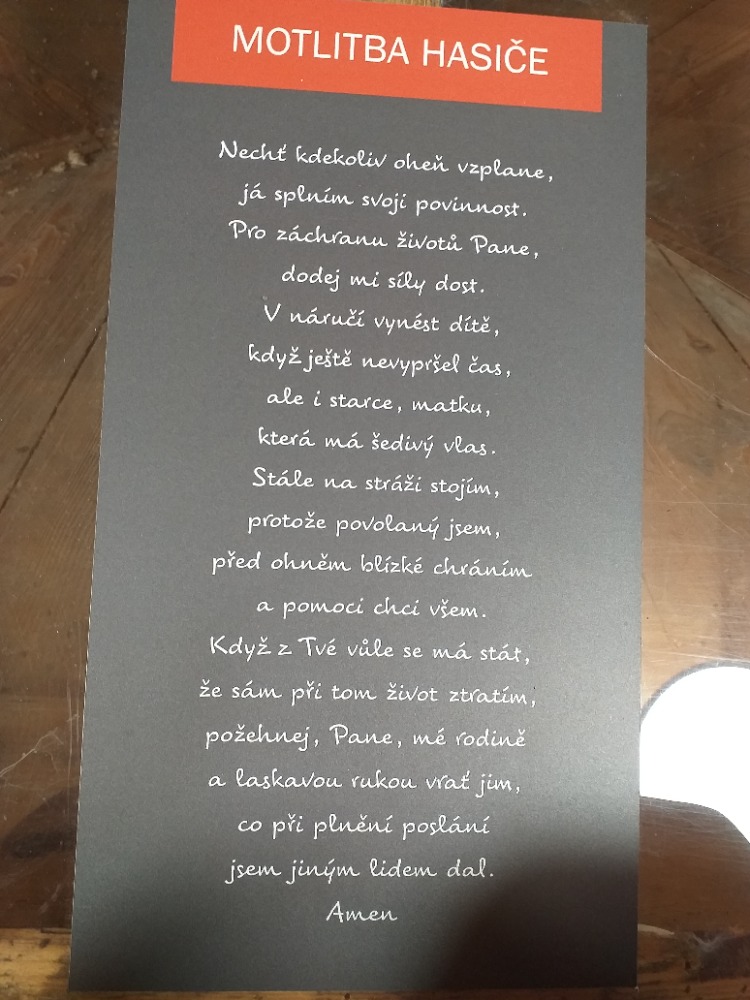 MOTLITBA HASIČE
Nechť kdekoliv oheň vzplane,
já splním svoji povinnost.
Pro záchranu životů Pane,
dodej mi síly dost.
V náručí vynést dítě,
když ještě nevypršel čas,
ale i starce, matku,
která má šedivý vlas.
Stále na stráži stojím,
protože povolaný jsem,
před ohněm blízké chráním
a pomoci chci všem.
Když z Tvé vůle se má stát,
že sám při tom život ztratím,
požehnej, Pane, mé rodině
a laskavou rukou vrať jim,
co při plnění poslání
jsem jiným lidem dal.
Amen